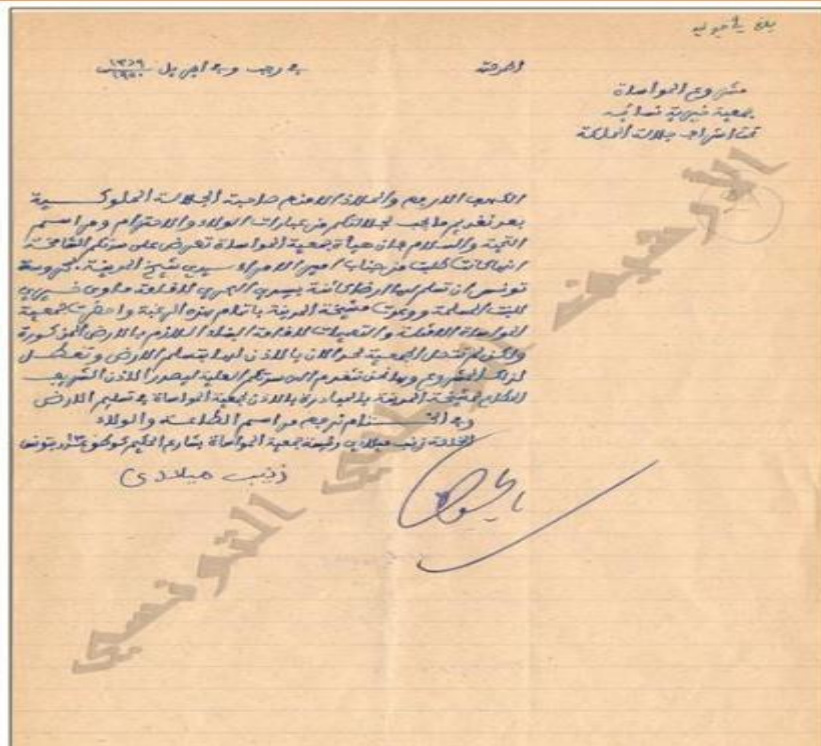 بلغ في جوان
المرسى
في رجب وفي افريل 1369 1950
مشروع المواساة
جمعية خيرية نسائية
تحت اشراف جلالة الملكة
الكهف الارحم والملاذ الافخم صاحبة الجلالة الملوكية
بعد تقديم ما يجب لجلالتكم من عبارات الولاء والاحترام ومراسم
التحية والسلام فإن هيأة جمعية المواساة تعرض على سدتكم الفاخمة
انها كانت طلبت من جناب امير الامراء سيدي شيخ المدينة بمحروسة
تونس ان تسلم لها الارض الكائنة بسيدي البحري لاقامة مأوى خيري
للبنت المسلمة ووعدت مشيخة المدينة باتمام هذه الرغبة واحضرت جمعية
المواساة الامثلة والتصميمات لاقامة البناء اللازم بالارض المذكورة
ولكن لم تتصل الجمعية لحد الآن بالاذن لها بتسلم الارض وتعطل
لذلك المشروع وها نحن نتقدم الى سدتكم العلية ليصدر الاذن الشريف
المطاع لمشيخة المدينة بالمبادرة بالاذن لجمعية المواساة في تسليم الارض
وفي الختام نرجع مراسم الطاعة والولاء
زينب ميلادي رئيسة جمعية المواساة بشارع الحكيم بتونس
زينب ميلادي
الأرشيف الوطني التونسي